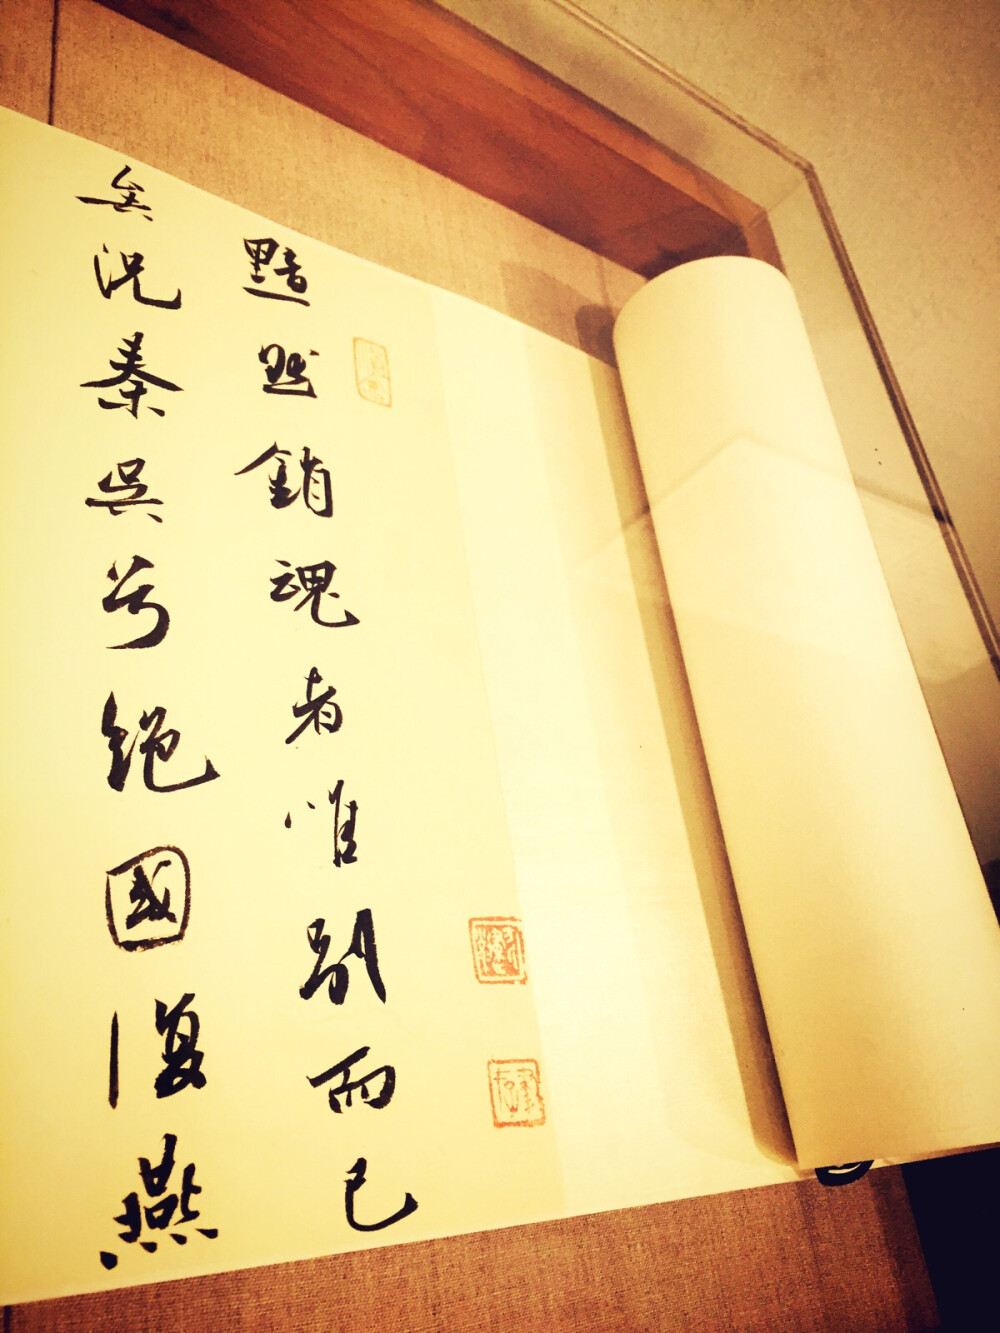 黯然銷魂者唯別而已
矣況秦吳兮絕國復燕